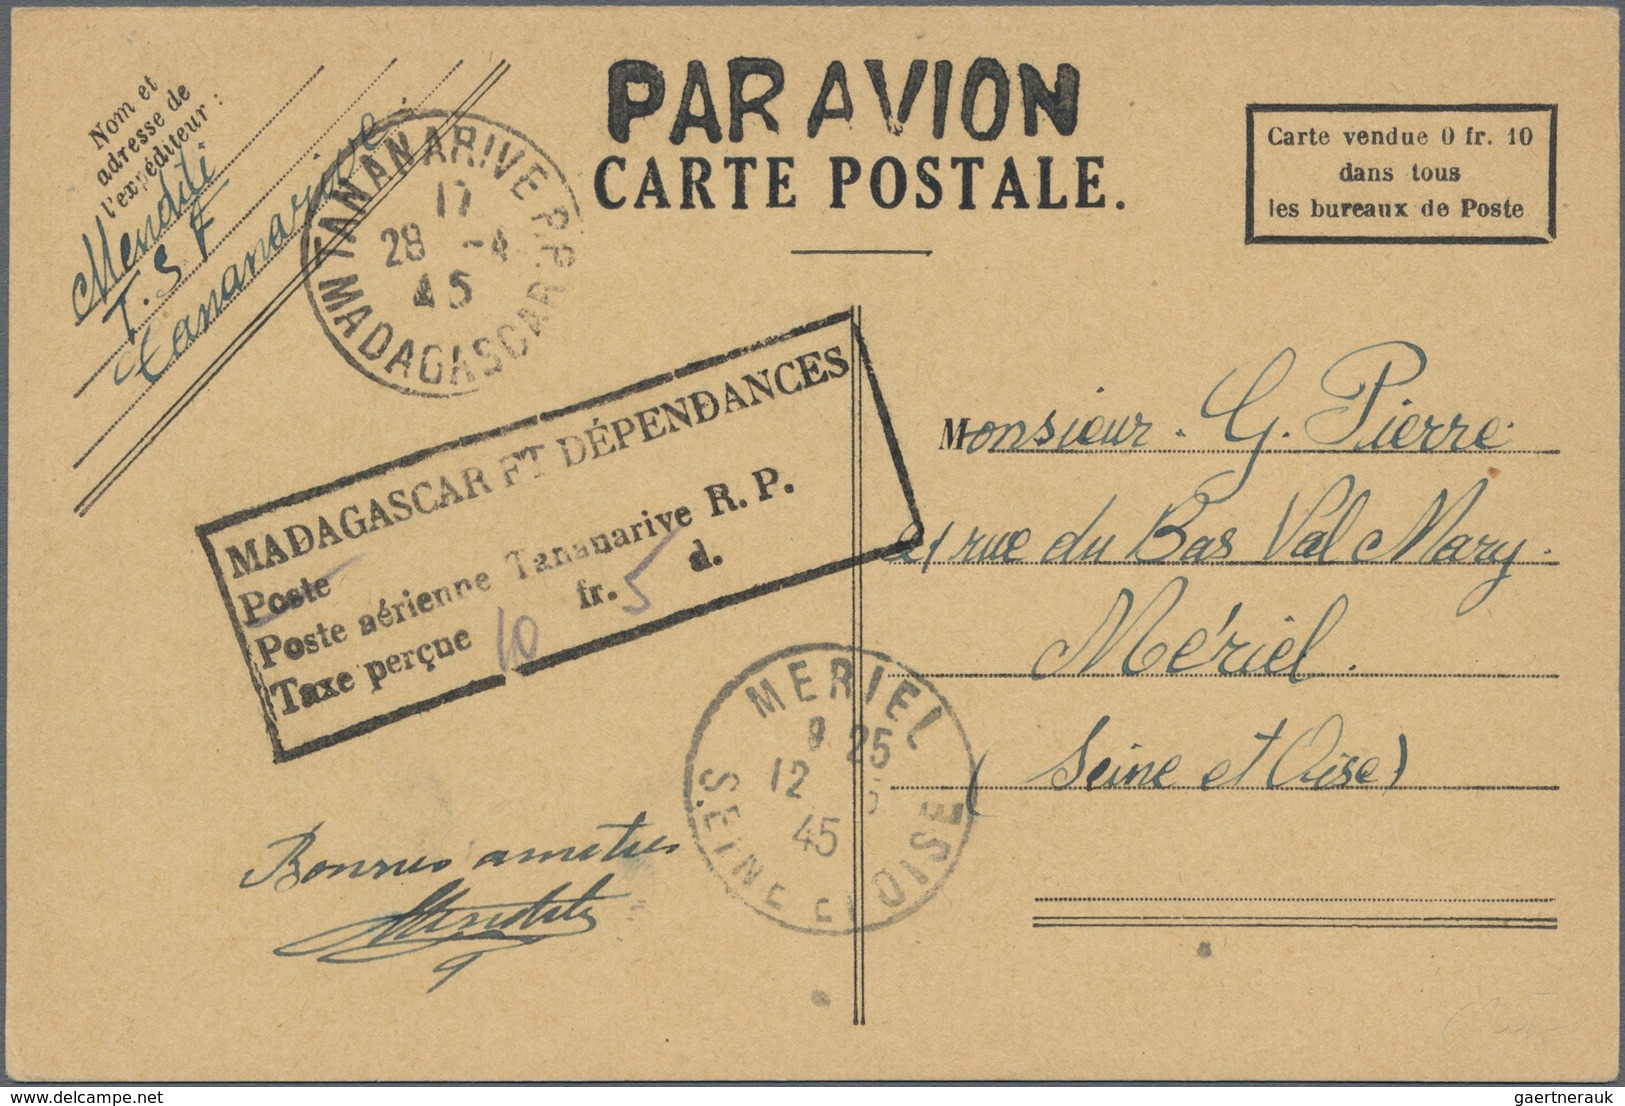 Nom et
adresse de
l'expéditeur :
Menditi
T.S.F
Tananarive
PAR AVION
CARTE POSTALE.
Carte vendue 0 fr. 10
dans tous
les bureaux de Poste
TANANARIVE R.P.
17
28 -4
45
MADAGASCAR
MADAGASCAR ET DÉPENDANCES
Poste
Poste aérienne Tananarive R. P.
Taxe perçue 10 fr. 5 d.
Monsieur. G. Pierre
21 rue du Bas Val Mary.
Mériel.
(Seine et Oise)
MERIEL
9 25
12
45
SEINE ET OISE
Bonnes amitiés
Menditi
gaertnerauk